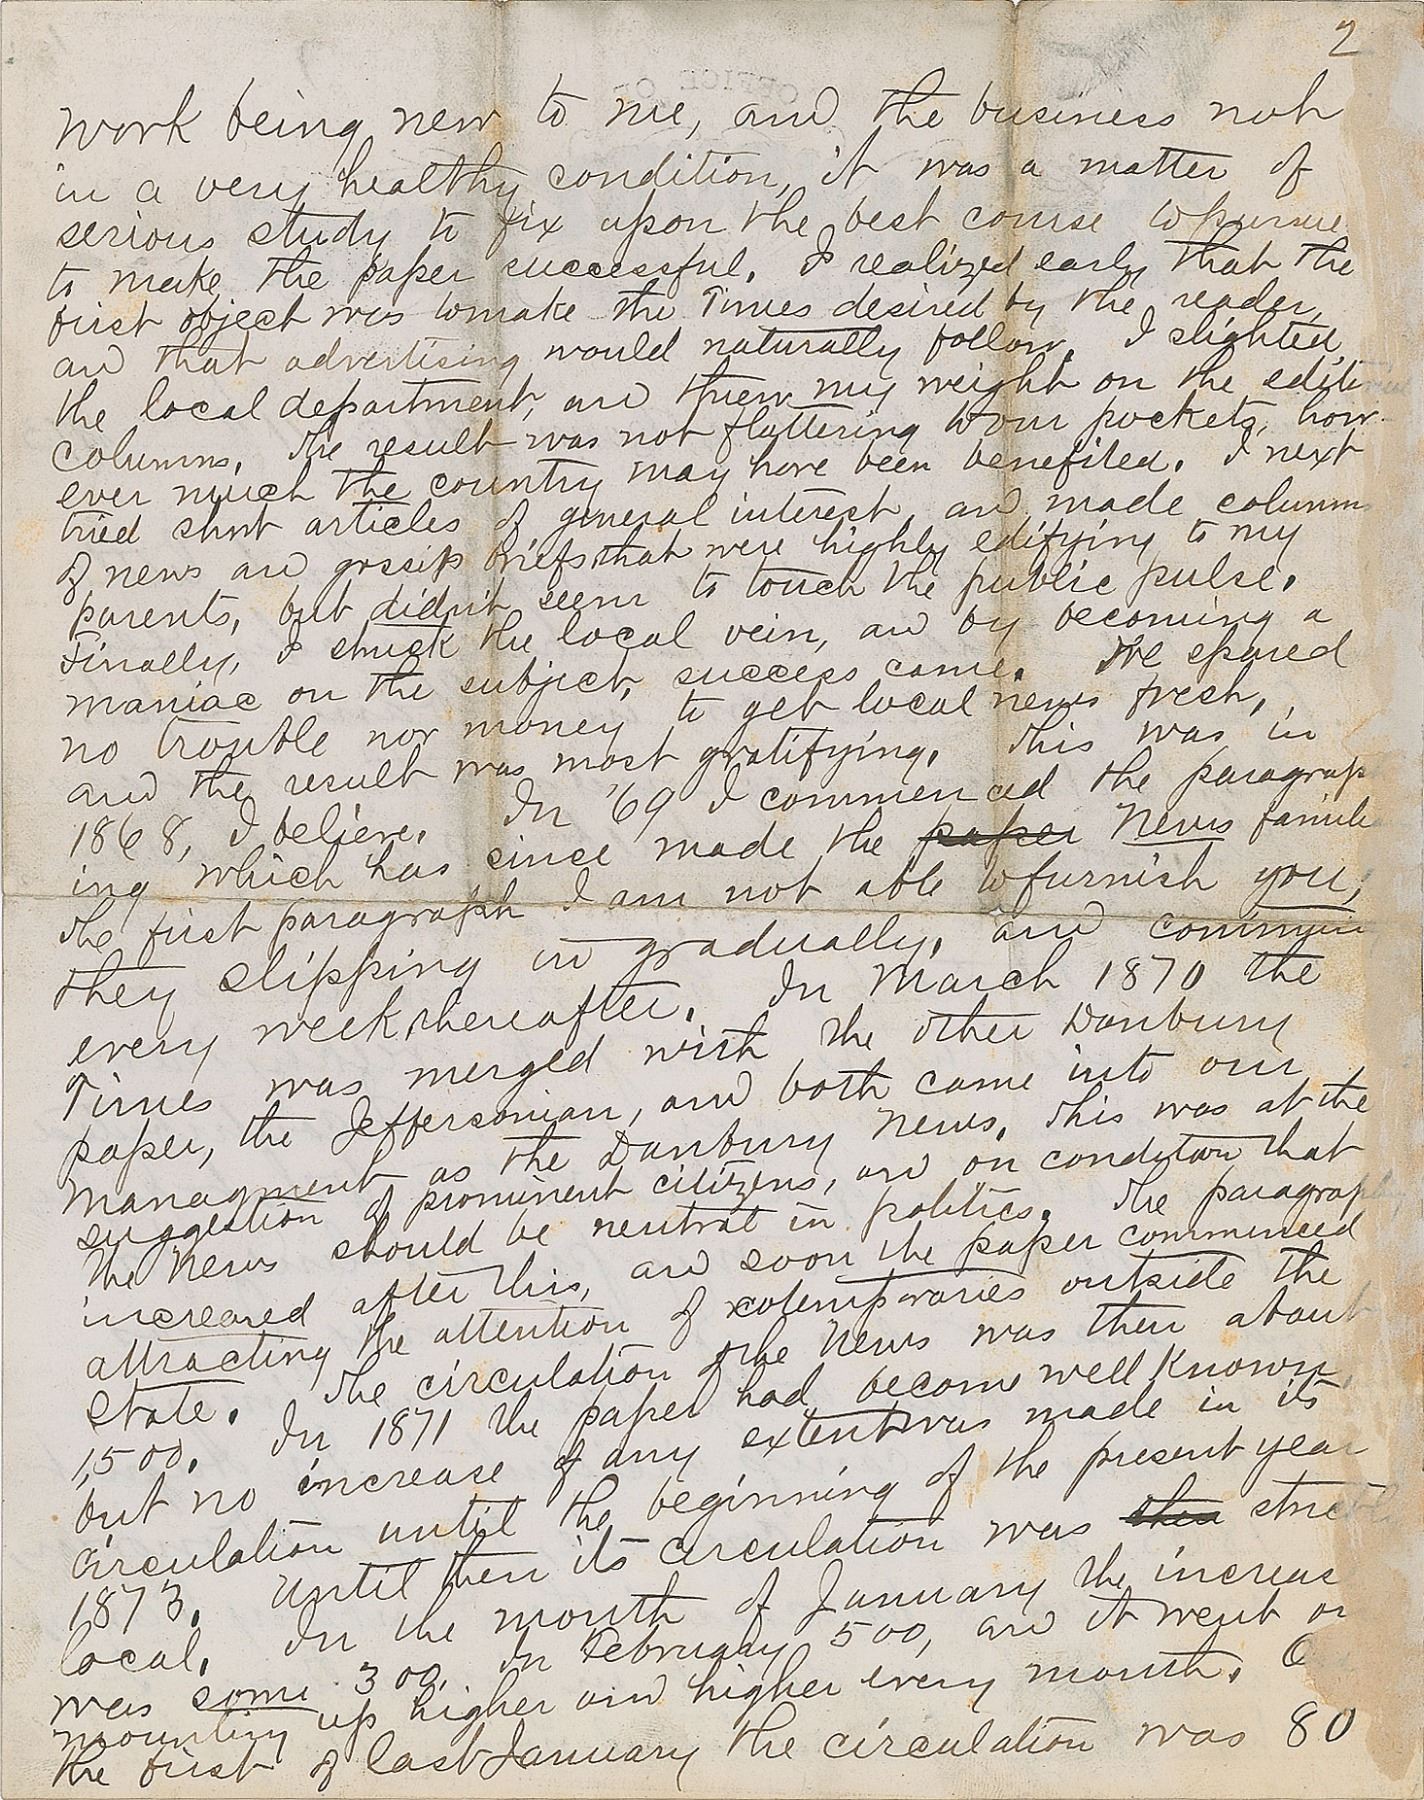 2
work being new to me, and the business not
in a very healthy condition, it was a matter of
serious study to fix upon the best course to pursue
to make the paper successful. I realized early that the
first object was to make the Times desired by the reader,
and that advertising would naturally follow. I slighted
the local department, and threw my weight on the editorial
columns. The result was not flattering to our pockets, how-
ever much the country may have been benefited. I next
tried short articles of general interest and made columns
of news and gossip briefs that were highly edifying to my
parents, but didn't seem to touch the public pulse.
Finally, I struck the local vein, and by becoming a
maniac on the subject, success came. We spared
no trouble nor money to get local news fresh,
and the result was most gratifying. This was in
1868, I believe. In '69 I commenced the paragraph
ing which has since made the paper News familiar
The first paragraph I am not able to furnish you,
they slipping in gradually, and coming
every week thereafter. In March 1870 the
Times was merged with the other Danbury
paper, the Jeffersonian, and both came into our
managment as the Danbury News. This was at the
suggestion of prominent citizens, and on condition that
the News should be neutral in politics. The paragraphs
increased after this, and soon the paper commenced
attracting the attention of cotemporaries outside the
State. The circulation of the News was then about
1,500. In 1871 the paper had become well known,
but no increase of any extent was made in its
circulation until the beginning of the present year
1873. Until then its circulation was then strictly
local. In the month of January the increase
was some 300. In February 500, and it went on
mounting up higher and higher every month. On
the first of last January the circulation was 80